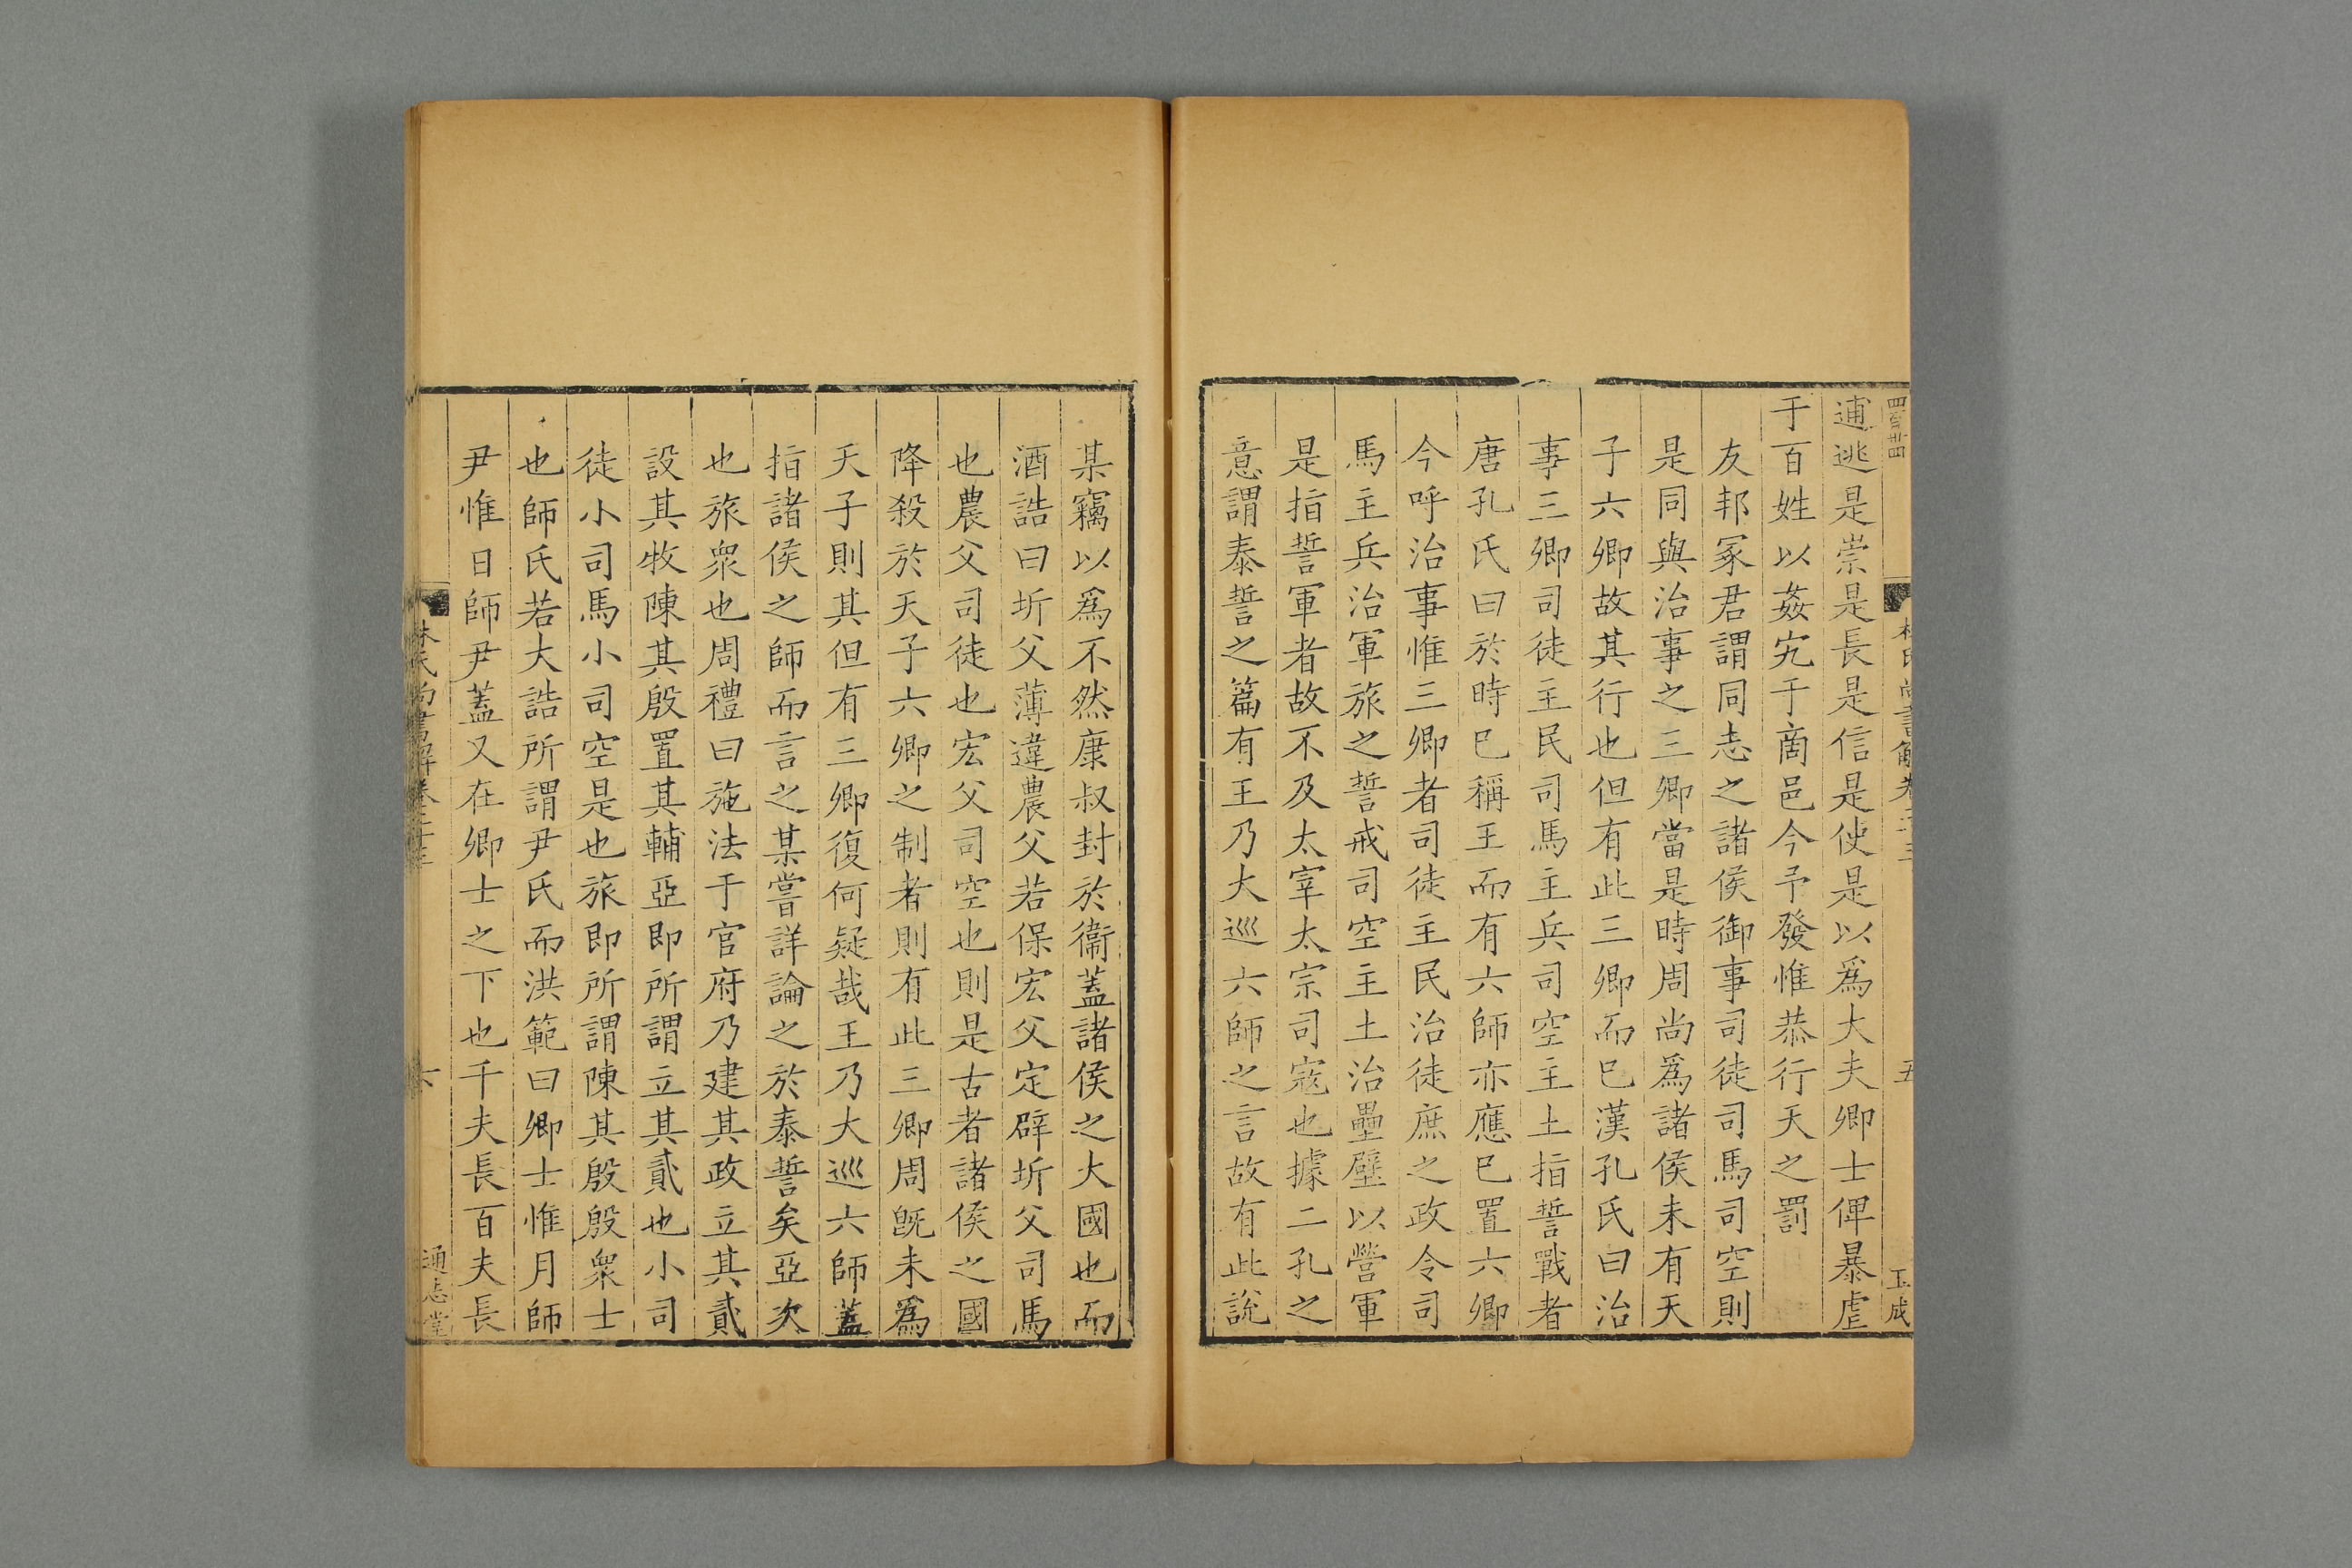 逋逃是崇是長是信是使是以爲大夫卿士俾暴虐
于百姓以姦宄于啇邑今予發惟恭行天之罰
友邦冢君謂同志之諸侯御事司徒司馬司空則
是同與治事之三卿當是時周尚爲諸侯未有天
子六卿故其行也但有此三卿而已漢孔氏曰治
事三卿司徒主民司馬主兵司空主土指誓戰者
唐孔氏曰於時已稱王而有六師亦應已置六卿
今呼治事惟三卿者司徒主民治徒庶之政令司
馬主兵治軍旅之誓戒司空主土治壘壁以營軍
是指誓軍者故不及太宰太宗司寇也據二孔之
意謂泰誓之篇有王乃大巡六師之言故有此說
某竊以爲不然康叔封於衞蓋諸侯之大國也而
酒誥曰圻父薄違農父若保宏父定辟圻父司馬
也農父司徒也宏父司空也則是古者諸侯之國
降殺於天子六卿之制者則有此三卿周旣未爲
天子則其但有三卿復何疑哉王乃大巡六師蓋
指諸侯之師而言之某嘗詳論之於泰誓矣亞次
也旅衆也周禮曰施法于官府乃建其政立其貳
設其牧陳其殷置其輔亞即所謂立其貳也小司
徒小司馬小司空是也旅即所謂陳其殷殷衆士
也師氏若大誥所謂尹氏而洪範曰卿士惟月師
尹惟日師尹蓋又在卿士之下也千夫長百夫長
林氏尚書解卷二十三
六
通志堂
五
玉成